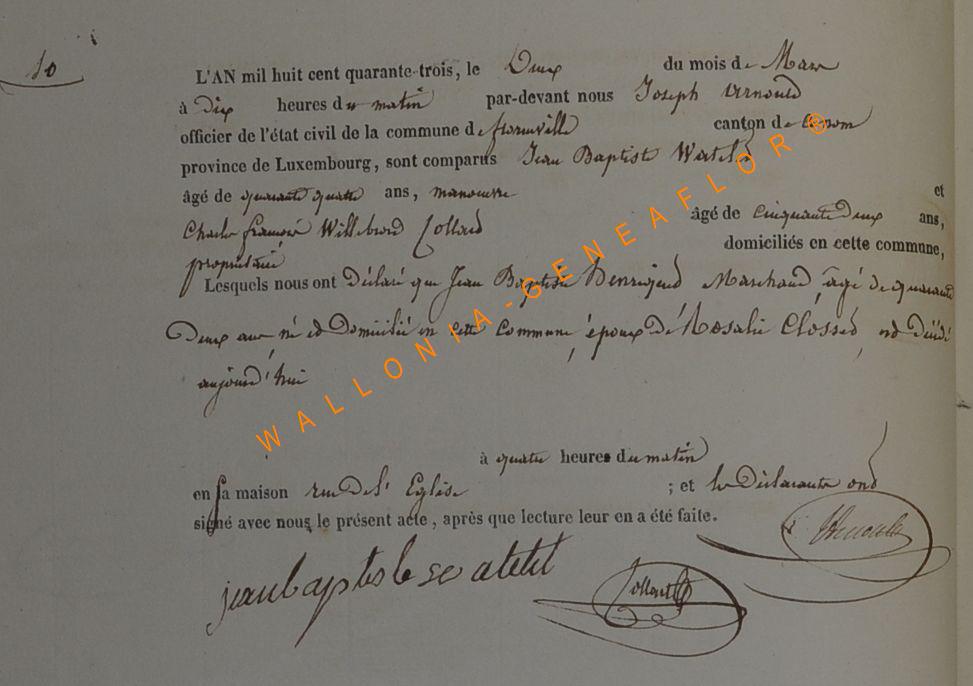 10
L'AN mil huit cent quarante-trois, le Deux du mois de Mars
à Dix heures du matin par-devant nous Joseph Arnould
officier de l'état civil de la commune de florenville canton de
province de Luxembourg, sont comparus Jean Baptiste Watelet
âgé de quarante quatre ans, manoeuvre et
Charles françois Willebrord Collard âgé de cinquante Deux ans,
propriétaire domiciliés en cette commune,
Lesquels nous ont Déclaré que Jean Baptiste Marchand, âgé de quarante
Deux ans né et Domicilié en cette commune, époux de Rosalie Closset, est décédé
aujourd'hui
à quatre heures du matin
en sa maison rue de l'Eglise ; et les Déclarants ont
signé avec nous le présent acte, après que lecture leur en a été faite.
Arnould
jean baptiste
Collard
WALLONIA-GENEAFLOR®